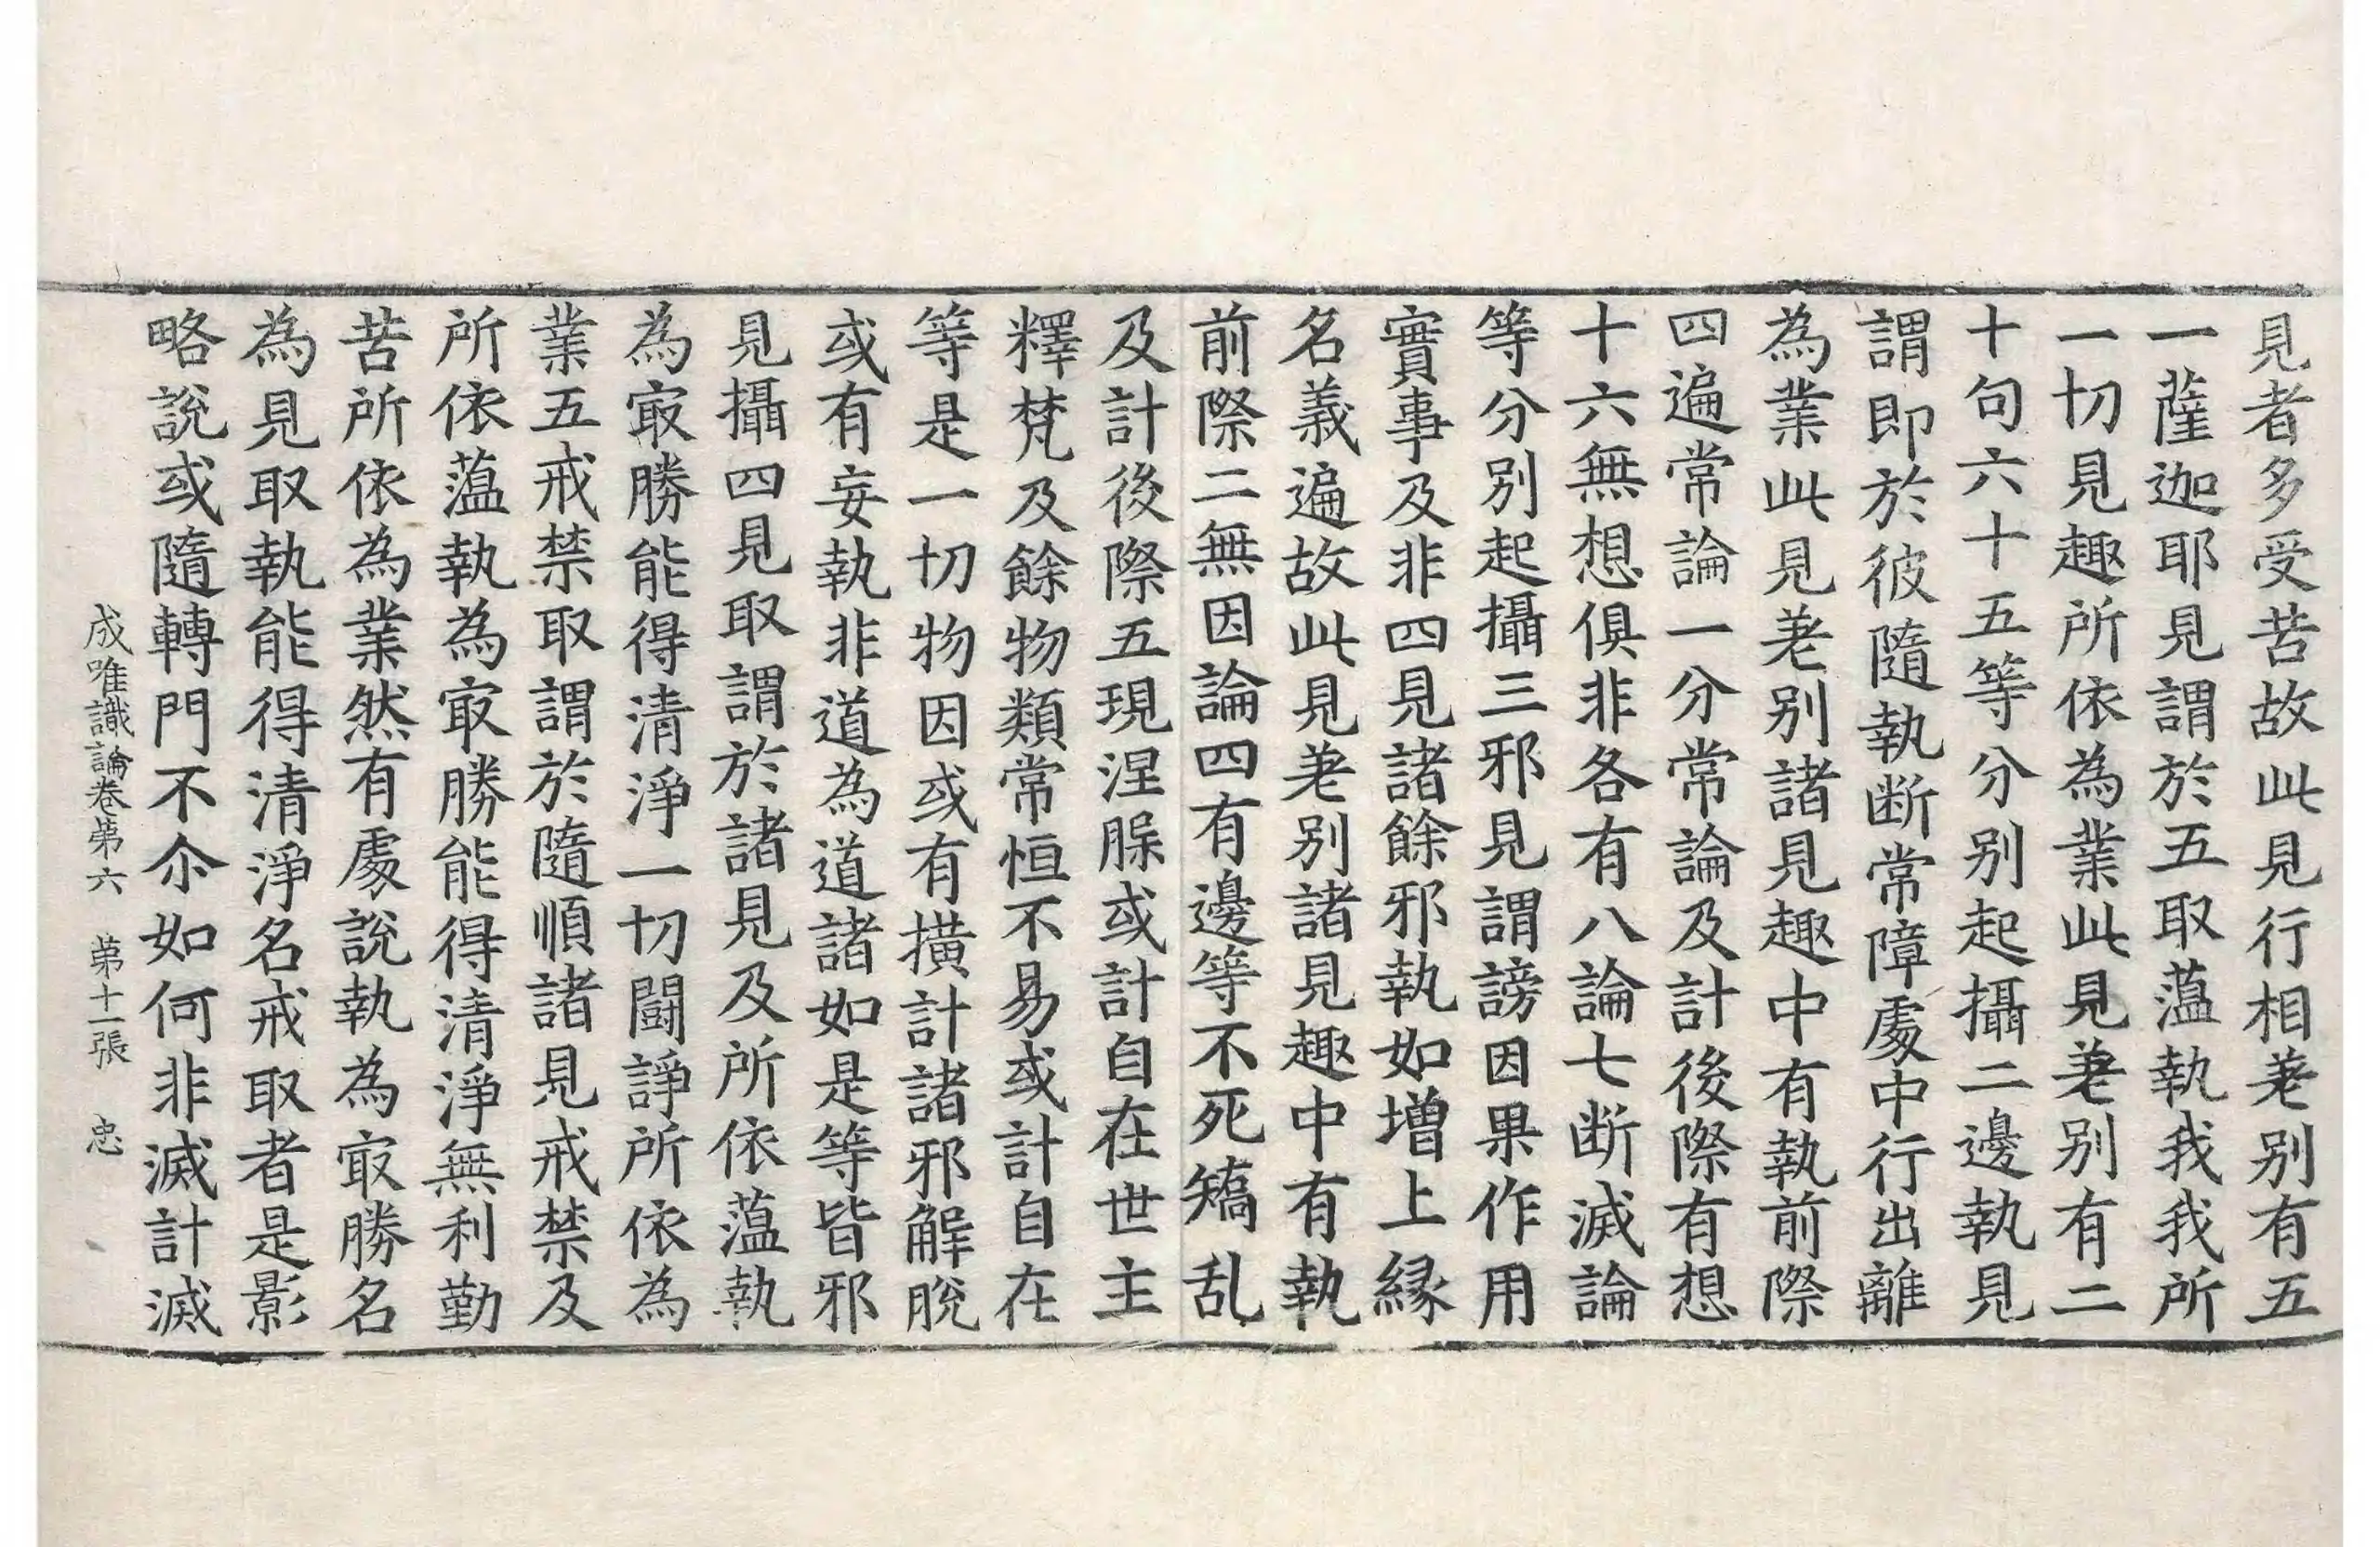 見者多受苦故此見行相差别有五
一薩迦耶見謂於五取蕰執我我所
一切見趣所依為業此見差别有二
十句六十五等分别起攝二邊執見
謂即於彼隨執断常障處中行出離
為業此見差别諸見趣中有執前際
四遍常論一分常論及計後際有想
十六無想俱非各有八論七断滅論
等分别起攝三邪見謂謗因果作用
實事及非四見諸餘邪執如增上縁
名義遍故此見差别諸見趣中有執
前際二無因論四有邊等不死矯乱
及計後際五現涅槃或計自在世主
釋梵及餘物類常恒不易或計自在
等是一切物因或有撗計諸邪解脫
或有妄執非道為道諸如是等皆邪
見攝四見取謂於諸見及所依蕰執
為㝡勝能得清淨一切鬪諍所依為
業五戒禁取謂於隨順諸見戒禁及
所依蕰執為㝡勝能得清淨無利勤
苦所依為業然有處說執為㝡勝名
為見取執能得清淨名戒取者是影
略說或隨轉門不尒如何非滅計滅
成唯識論卷第六 第十一張 忠